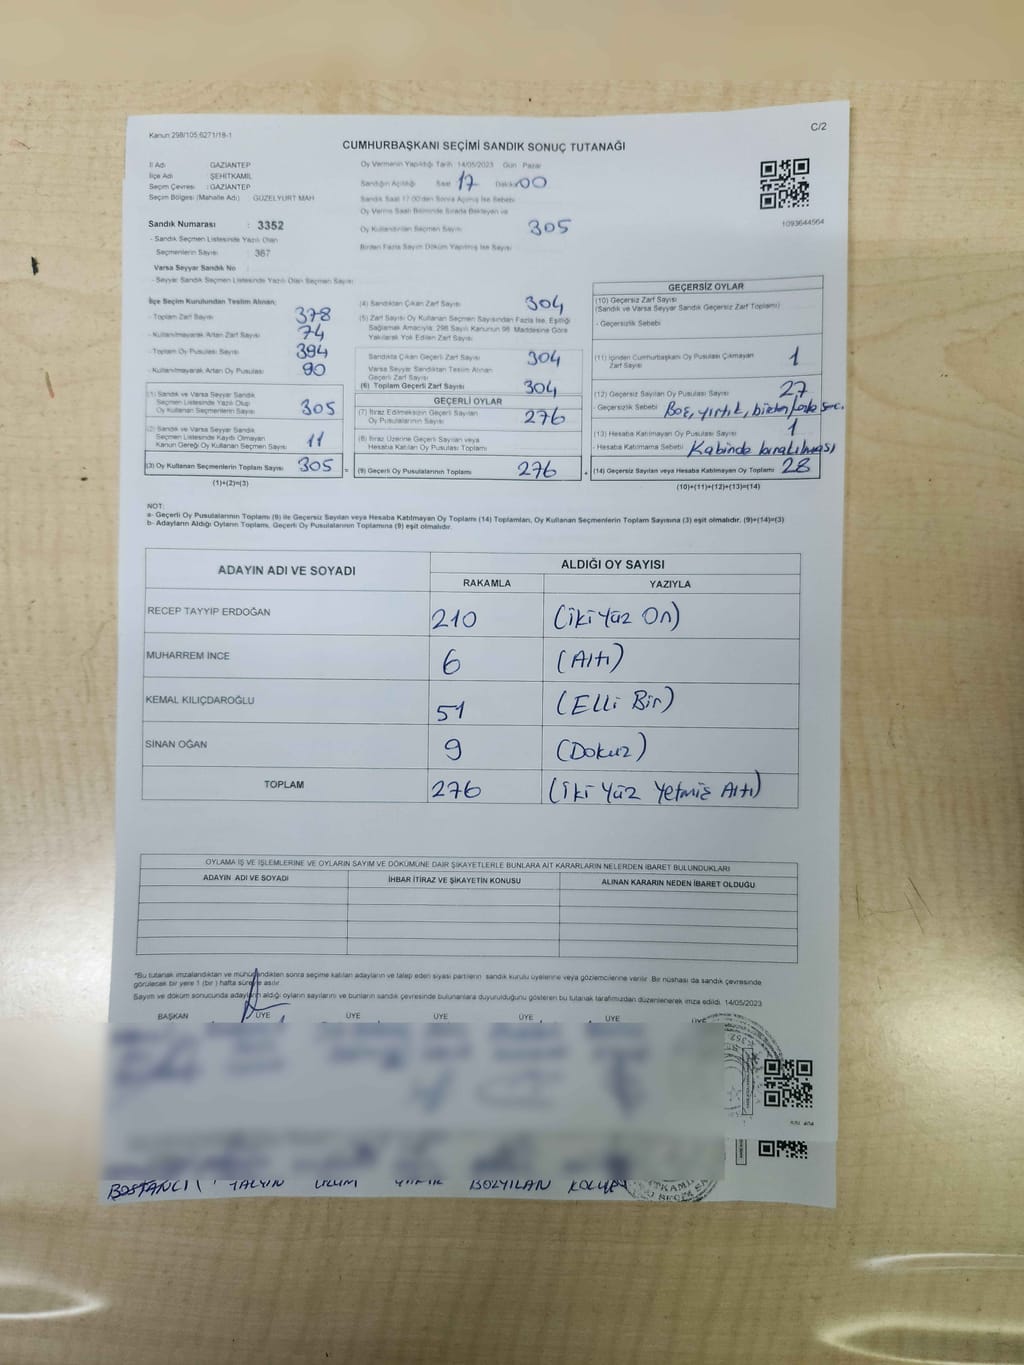 Kanun:298/105;6271/18-1
C/2
CUMHURBAŞKANI SEÇİMİ SANDIK SONUÇ TUTANAĞI
İl Adı : GAZİANTEP
İlçe Adı : ŞEHİTKAMİL
Seçim Çevresi : GAZİANTEP
Seçim Bölgesi (Mahalle Adı) : GÜZELYURT MAH
Sandık Numarası : 3352
- Sandık Seçmen Listesinde Yazılı Olan
Seçmenlerin Sayısı : 367
Varsa Seyyar Sandık No :
- Seyyar Sandık Seçmen Listesinde Yazılı Olan Seçmen Sayısı :
Oy Vermenin Yapıldığı Tarih 14/05/2023 Gün Pazar
Sandığın Açıldığı Saat 17 Dakika 00
Sandık Saat 17:00'den Sonra Açılmış İse Sebebi
Oy Verme Saati Bitiminde Sırada Bekleyen ve
Oy Kullandırılan Seçmen Sayısı 305
Birden Fazla Sayım Döküm Yapılmış İse Sayısı :
1093644564
İlçe Seçim Kurulundan Teslim Alınan:
- Toplam Zarf Sayısı 378
- Kullanılmayarak Artan Zarf Sayısı 74
- Toplam Oy Pusulası Sayısı 394
- Kullanılmayarak Artan Oy Pusulası 90
(1) Sandık ve Varsa Seyyar Sandık
Seçmen Listesinde Yazılı Olup
Oy Kullanan Seçmenlerin Sayısı 305
(2) Sandık ve Varsa Seyyar Sandık
Seçmen Listesinde Kayıtlı Olmayan
Kanun Gereği Oy Kullanan Seçmen Sayısı 11
(3) Oy Kullanan Seçmenlerin Toplam Sayısı 305 =
(1)+(2)=(3)
(4) Sandıktan Çıkan Zarf Sayısı 304
(5) Zarf Sayısı Oy Kullanan Seçmen Sayısından Fazla İse, Eşitliği
Sağlamak Amacıyla; 298 Sayılı Kanunun 98. Maddesine Göre
Yakılarak Yok Edilen Zarf Sayısı
Sandıkta Çıkan Geçerli Zarf Sayısı 304
Varsa Seyyar Sandıktan Teslim Alınan
Geçerli Zarf Sayısı
(6) Toplam Geçerli Zarf Sayısı 304
GEÇERLİ OYLAR
(7) İtiraz Edilmeksizin Geçerli Sayılan
Oy Pusulasının Sayısı 276
(8) İtiraz Üzerine Geçerli Sayılan veya
Hesaba Katılan Oy Pusulası Toplamı
(9) Geçerli Oy Pusulalarının Toplamı 276 +
GEÇERSİZ OYLAR
(10) Geçersiz Zarf Sayısı
(Sandık ve Varsa Seyyar Sandık Geçersiz Zarf Toplamı)
- Geçersizlik Sebebi
(11) İçinden Cumhurbaşkanı Oy Pusulası Çıkmayan
Zarf Sayısı 1
(12) Geçersiz Sayılan Oy Pusulası Sayısı 27
- Geçersizlik Sebebi Boş, yırtık,
(13) Hesaba Katılmayan Oy Pusulası Sayısı 1
- Hesaba Katılmama Sebebi Kabinde bırakılması
(14) Geçersiz Sayılan veya Hesaba Katılmayan Oy Toplamı 28
(10)+(11)+(12)+(13)=(14)
NOT:
a- Geçerli Oy Pusulalarının Toplamı (9) ile Geçersiz Sayılan veya Hesaba Katılmayan Oy Toplamı (14) Toplamları, Oy Kullanan Seçmenlerin Toplam Sayısına (3) eşit olmalıdır. (9)+(14)=(3)
b- Adayların Aldığı Oyların Toplamı, Geçerli Oy Pusulalarının Toplamına (9) eşit olmalıdır.
ADAYIN ADI VE SOYADI ALDIĞI OY SAYISI
RAKAMLA YAZIYLA
RECEP TAYYIP ERDOĞAN 210 (İki Yüz On)
MUHARREM İNCE 6 (Altı)
KEMAL KILIÇDAROĞLU 51 (Elli Bir)
SİNAN OĞAN 9 (Dokuz)
TOPLAM 276 (İki Yüz Yetmiş Altı)
OYLAMA İŞ VE İŞLEMLERİNE VE OYLARIN SAYIM VE DÖKÜMÜNE DAİR ŞİKAYETLERLE BUNLARA AİT KARARLARIN NELERDEN İBARET BULUNDUKLARI
ADAYIN ADI VE SOYADI İHBAR İTİRAZ VE ŞİKAYETİN KONUSU ALINAN KARARIN NEDEN İBARET OLDUĞU
*Bu tutanak imzalandıktan ve mühürlendikten sonra seçime katılan adayların ve talep eden siyasi partilerin sandık kurulu üyelerine veya gözlemcilerine verilir. Bir nüshası da sandık çevresinde
görülecek bir yere 1 (bir) hafta süreyle asılır.
Sayım ve döküm sonucunda adayların aldığı oyların sayılarını ve bunların sandık çevresinde bulunanlara duyurulduğunu gösteren bu tutanak tarafımızdan düzenlenerek imza edildi. 14/05/2023
BAŞKAN ÜYE ÜYE ÜYE ÜYE ÜYE ÜYE
BOSTANCI YALÇIN BOZYILAN